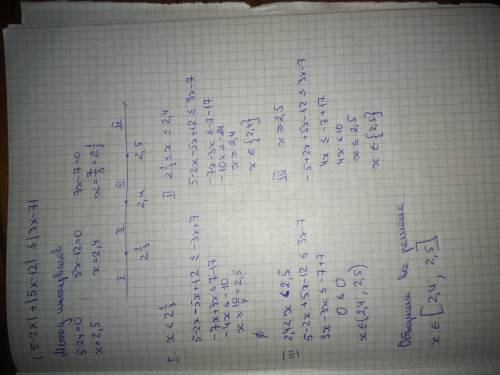 |5-2x|+|5x-12| ≤ |3x-7|
Метод интервалов
5-2x=0 5x-12=0 3x-7=0
x=2,5 x=2,4 x=7/3=2 1/3
I II III IV
2 1/3 2,4 2,5
I x < 2 1/3
5-2x-5x+12 ≤ -3x+7
-7x+3x ≤ 7-17
-4x ≤ -10
x ≥ 10/4 = 2,5
∅
II 2 1/3 ≤ x ≤ 2,4
5-2x-5x+12 ≤ 3x-7
-7x-3x ≤ -7-17
-10x = -24
x ≥ 2,4
x ∈ {2,4}
III 2,4 < x < 2,5
5-2x+5x-12 ≤ 3x-7
3x-3x ≤ -7+7
0 ≤ 0
x ∈ (2,4, 2,5)
IV x ≥ 2,5
-5+2x+5x-12 ≤ 3x-7
4x ≤ -7+17
4x ≤ 10
x ≤ 2,5
x ∈ {2,5}
Объединим все решения
x ∈ [2,4, 2,5]